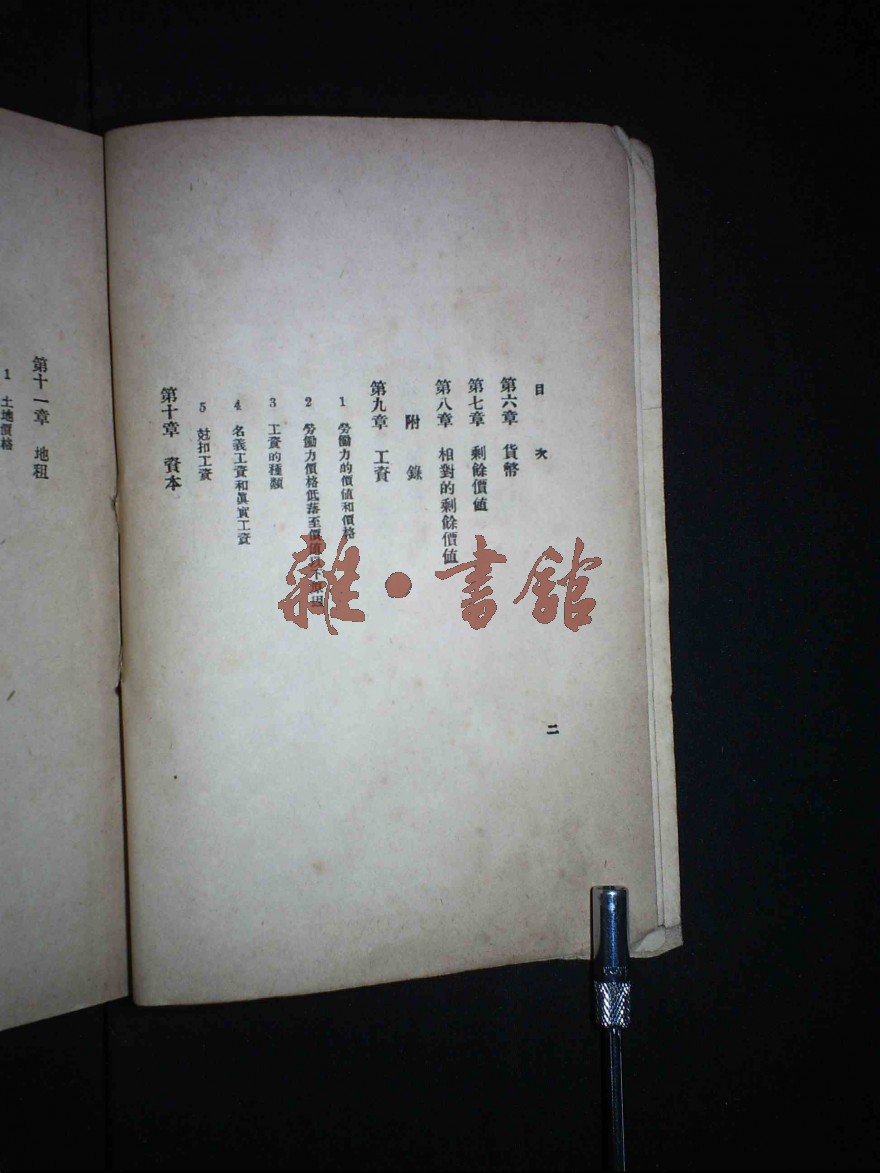 目次
第六章 貨幣
第七章 剩餘價値
第八章 相對的剩餘價値
附錄
第九章 工資
1 勞働力的價値和價格
2 勞働力價格低落至價値以下原因
3 工資的種類
4 名義工資和眞實工資
5 尅扣工資
第十章 資本
二
第十一章 地租
1 土地價格
雜·書館